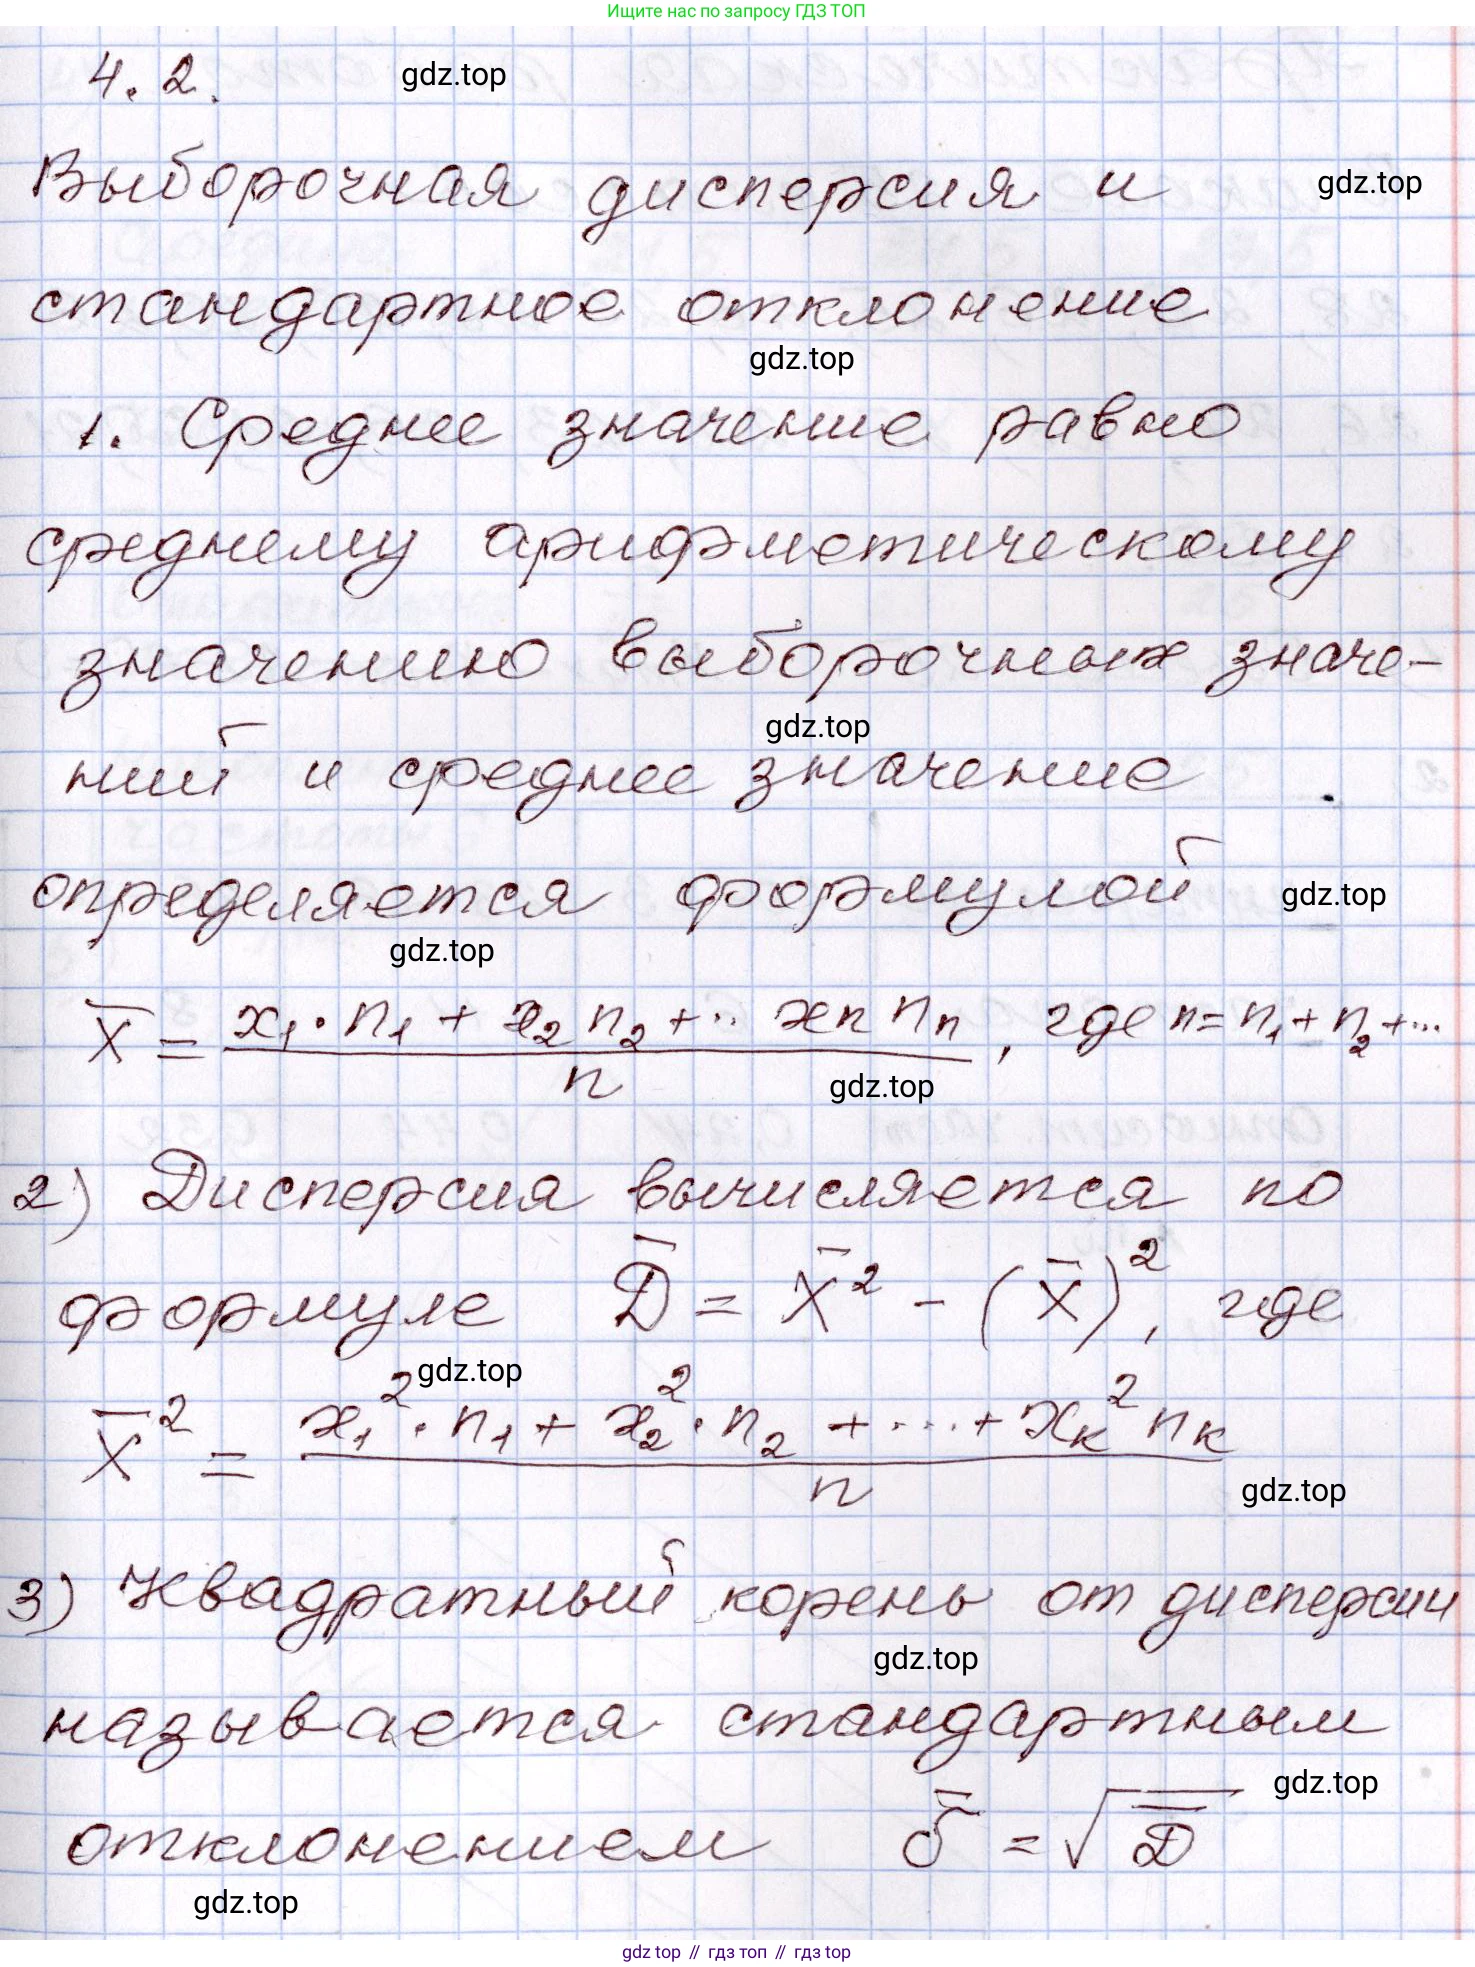 Ищите нас по запросу ГДЗ ТОП
4.2. gdz.top
Выборочная дисперсия и gdz.top
стандартное отклонение
gdz.top
1. Среднее значение равно
среднему арифметическому
значению выборочных значе-
gdz.top
ний и среднее значение
определяется формулой gdz.top
gdz.top
x̅ = (x₁·n₁ + x₂n₂ + ·· xₙ nₙ) / n, где n = n₁ + n₂ + ...
gdz.top
2) Дисперсия вычисляется по
формуле D̅ = x̅² - (x̅)², где
gdz.top
x̅² = (x₁²·n₁ + x₂²·n₂ + ... + xₖ² nₖ) / n
gdz.top
3) Квадратный корень от дисперсии
gdz.top
называется стандартным
gdz.top
отклонением σ̅ = √D̅
gdz.top
gdz top // гдз топ // гдз top